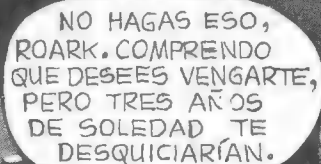 NO HAGAS ESO,
ROARK. COMPRENDO
QUE DESEES VENGARTE,
PERO TRES AÑOS
DE SOLEDAD TE
DESQUICIARÍAN.